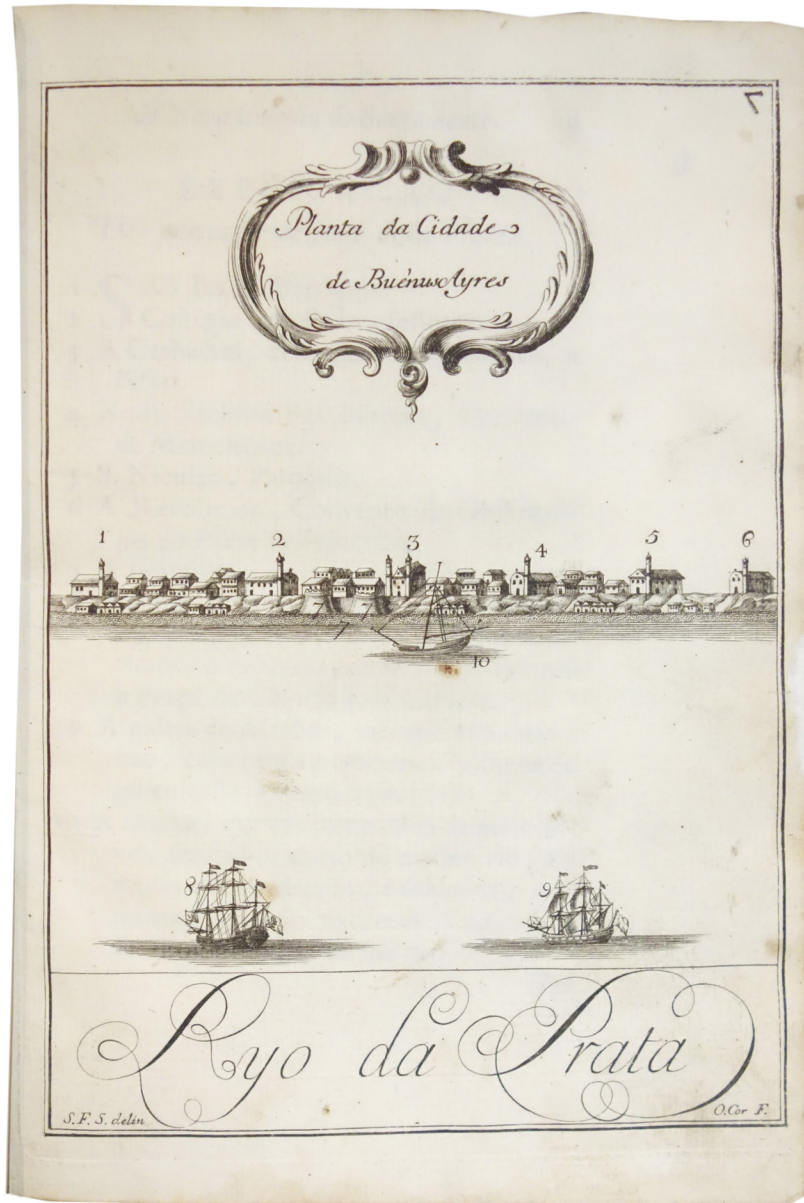 7
Planta da Cidade
de Buénus Ayres
1 2 3 4 5 6
7 7
7
10
8 9
Ryo da Prata
S. F. S. delin O. Cor F.